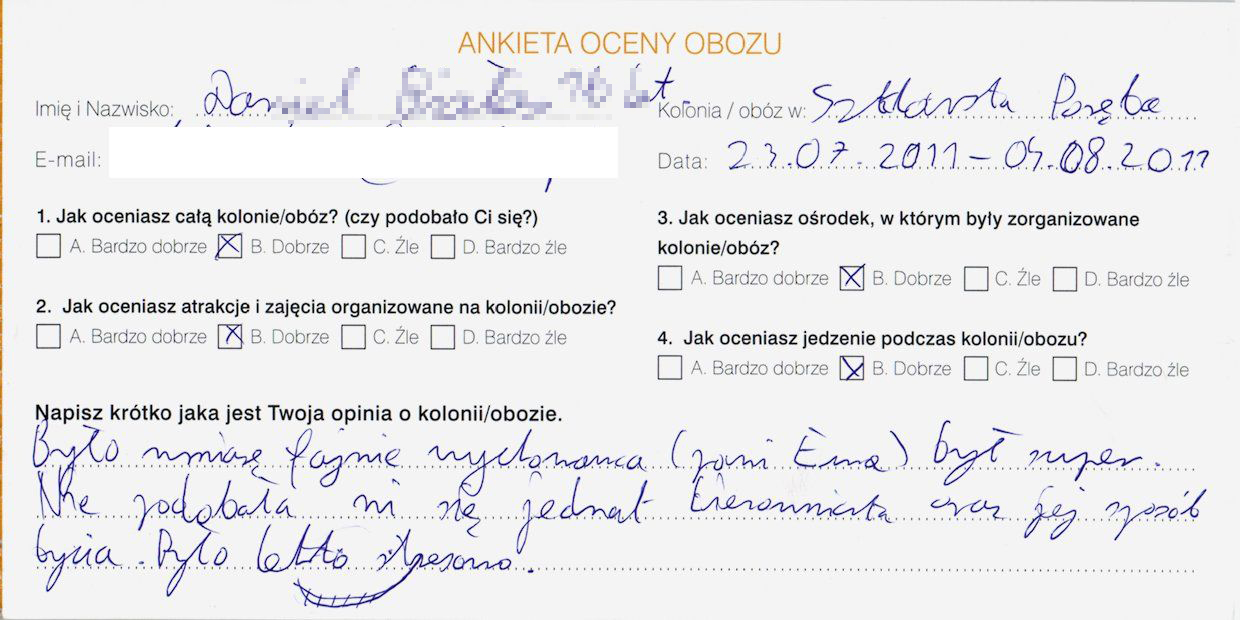 ANKIETA OCENY OBOZU
Imię i Nazwisko: Daniel
Kolonia / obóz w: Szklarska Poręba
E-mail:
Data: 23.07.2011 – 05.08.2011
1. Jak oceniasz całą kolonie/obóz? (czy podobało Ci się?)
A. Bardzo dobrze B. Dobrze C. Źle D. Bardzo źle
2. Jak oceniasz atrakcje i zajęcia organizowane na kolonii/obozie?
A. Bardzo dobrze B. Dobrze C. Źle D. Bardzo źle
3. Jak oceniasz ośrodek, w którym były zorganizowane
kolonie/obóz?
A. Bardzo dobrze B. Dobrze C. Źle D. Bardzo źle
4. Jak oceniasz jedzenie podczas kolonii/obozu?
A. Bardzo dobrze B. Dobrze C. Źle D. Bardzo źle
Napisz krótko jaka jest Twoja opinia o kolonii/obozie.
Było w miarę fajnie wychowawca (pani Ewa) był super.
Nie podobała mi się jednak kierowniczka oraz jej sposób
bycia. Było lekko stresowo.